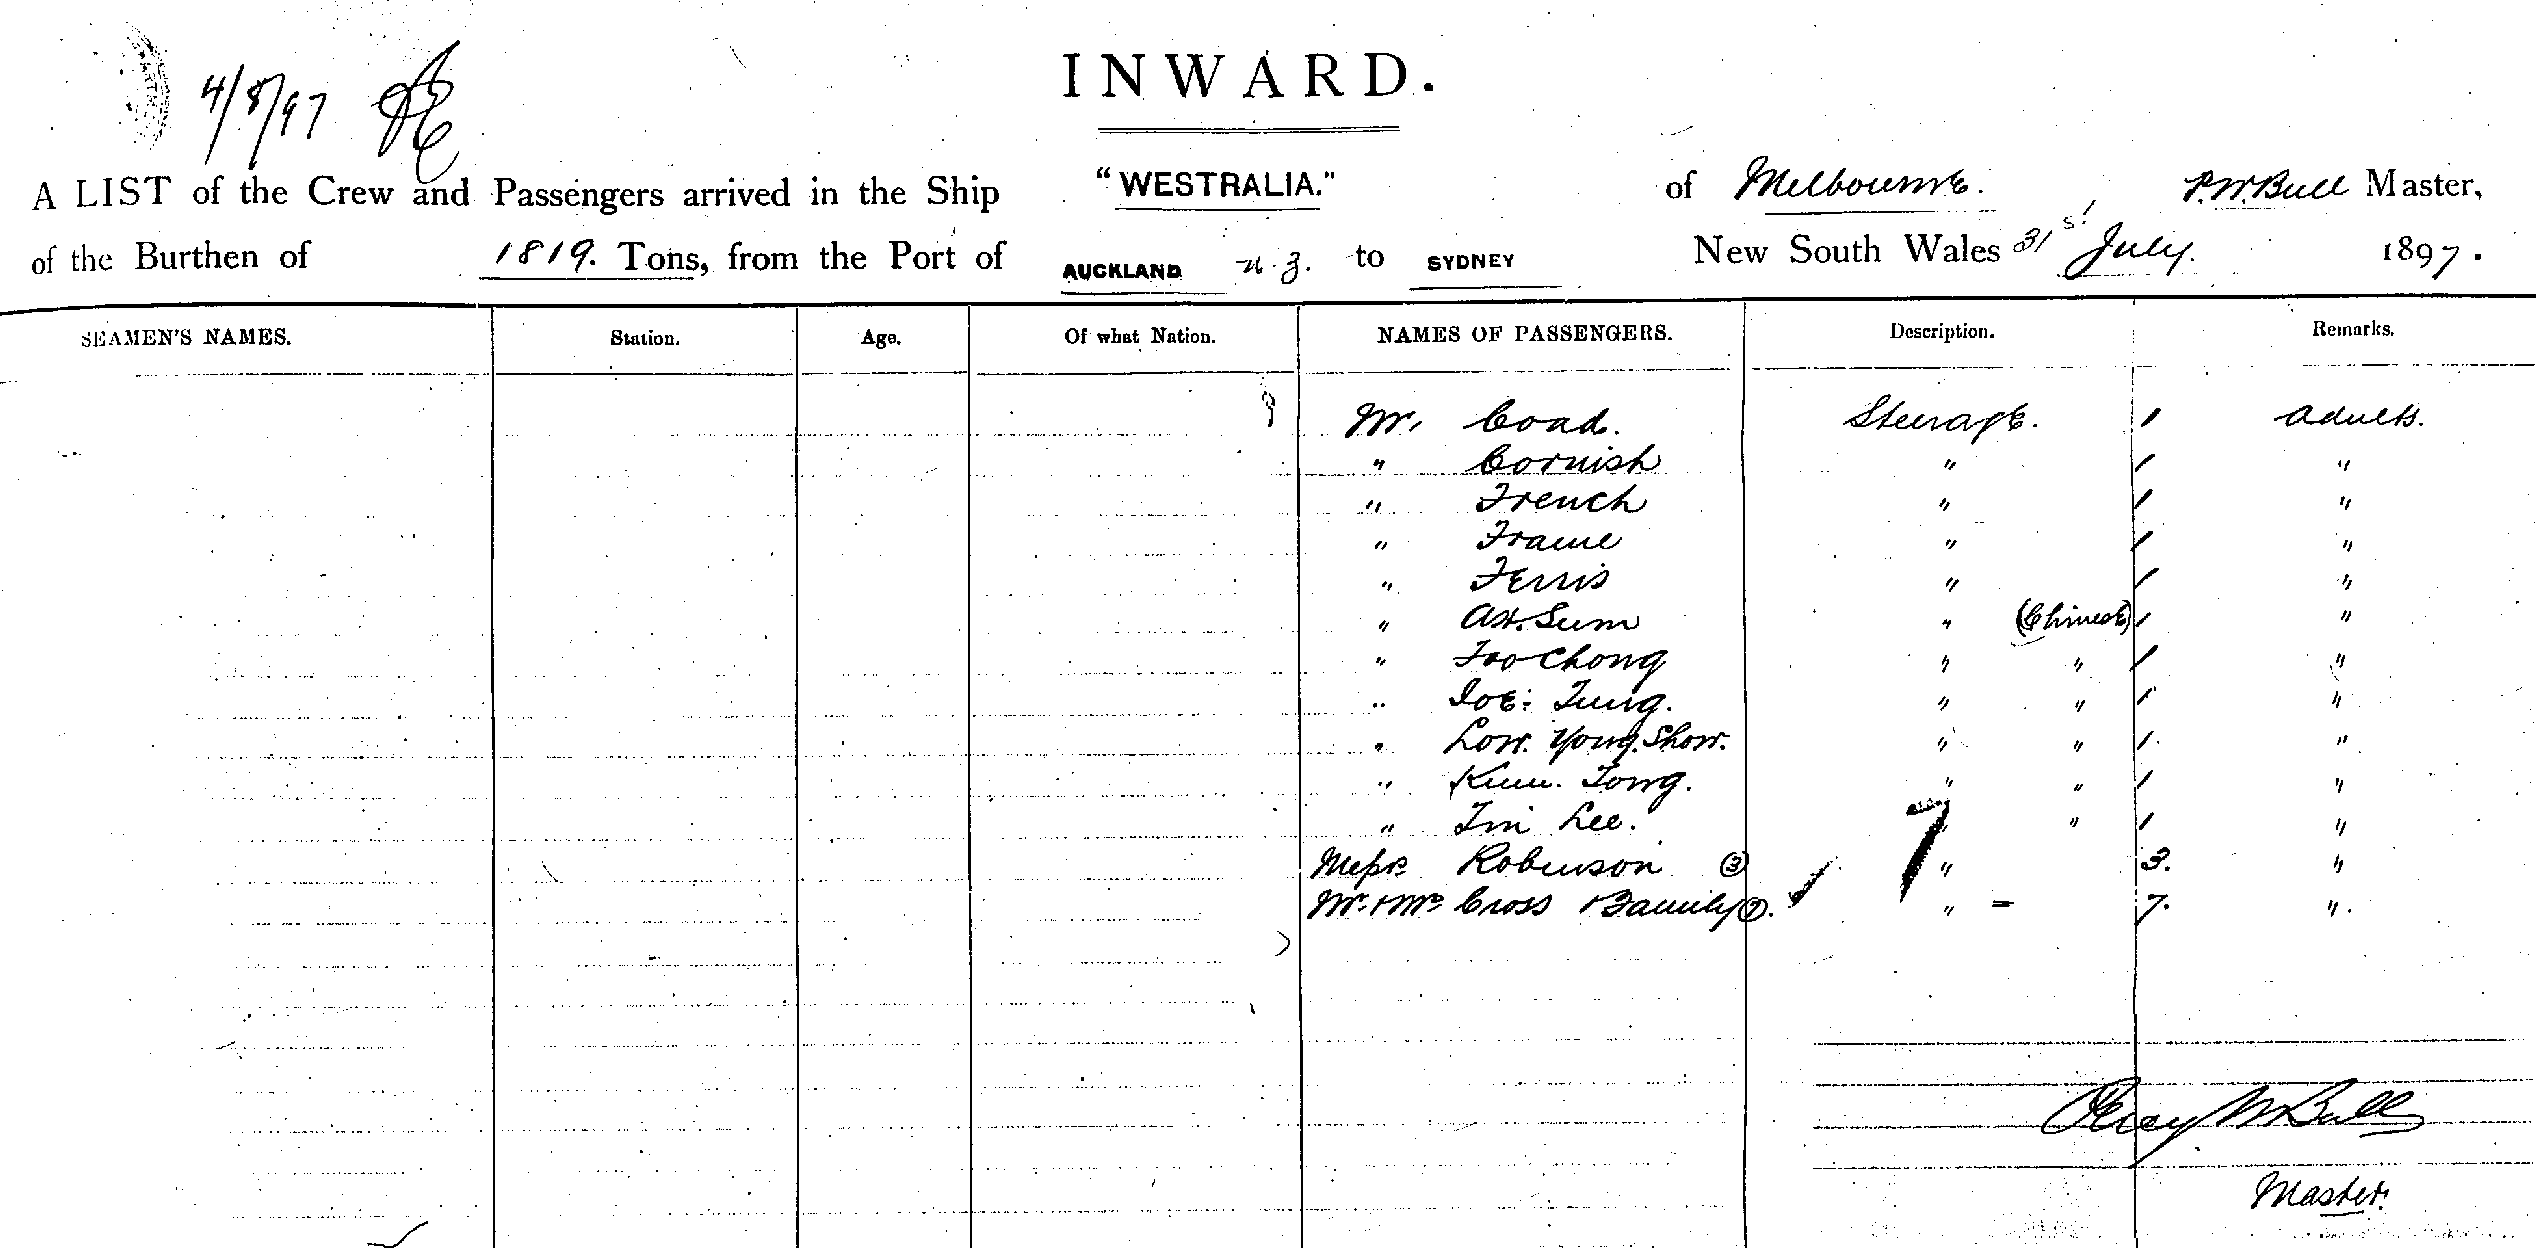 4/8/97
INWARD.
A LIST of the Crew and Passengers arrived in the Ship "WESTRALIA." of Melbourne. P.W. Bull Master,
of the Burthen of 1819. Tons, from the Port of AUCKLAND N.Z. to SYDNEY New South Wales 31st July. 1897.
SEAMEN'S NAMES. Station. Age. Of what Nation. NAMES OF PASSENGERS. Description. Remarks.
Mr. Coad. Steerage. 1 adults.
" Cornish " 1 "
" French " 1 "
" Frame " 1 "
" Ferris " 1 "
" Ah. Sum " (Chinese) 1 "
" Foo Chong " " 1 "
" Joe: Tung. " " 1 "
" Low. Yong. Show. " " 1 "
" Kum. Tong. " " 1 "
" Tin Lee. " " 1 "
Messrs Robinson (3) " 3. "
Mr. & Mrs Cross & Family (7). " - 7. ".
7
Percy W Bull
Master.